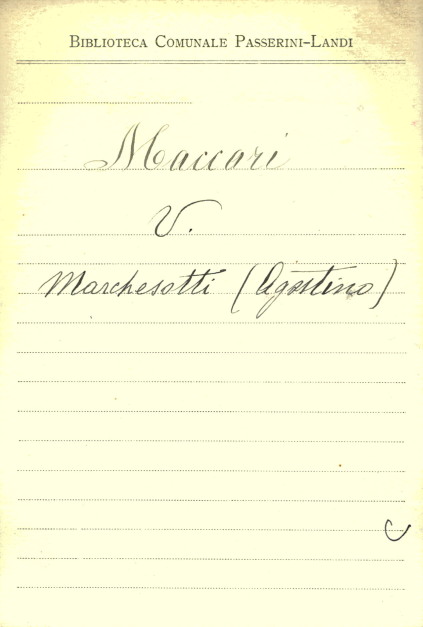 BIBLIOTECA COMUNALE PASSERINI-LANDI
Maccari
V.
Marchesotti (Agostino)
C